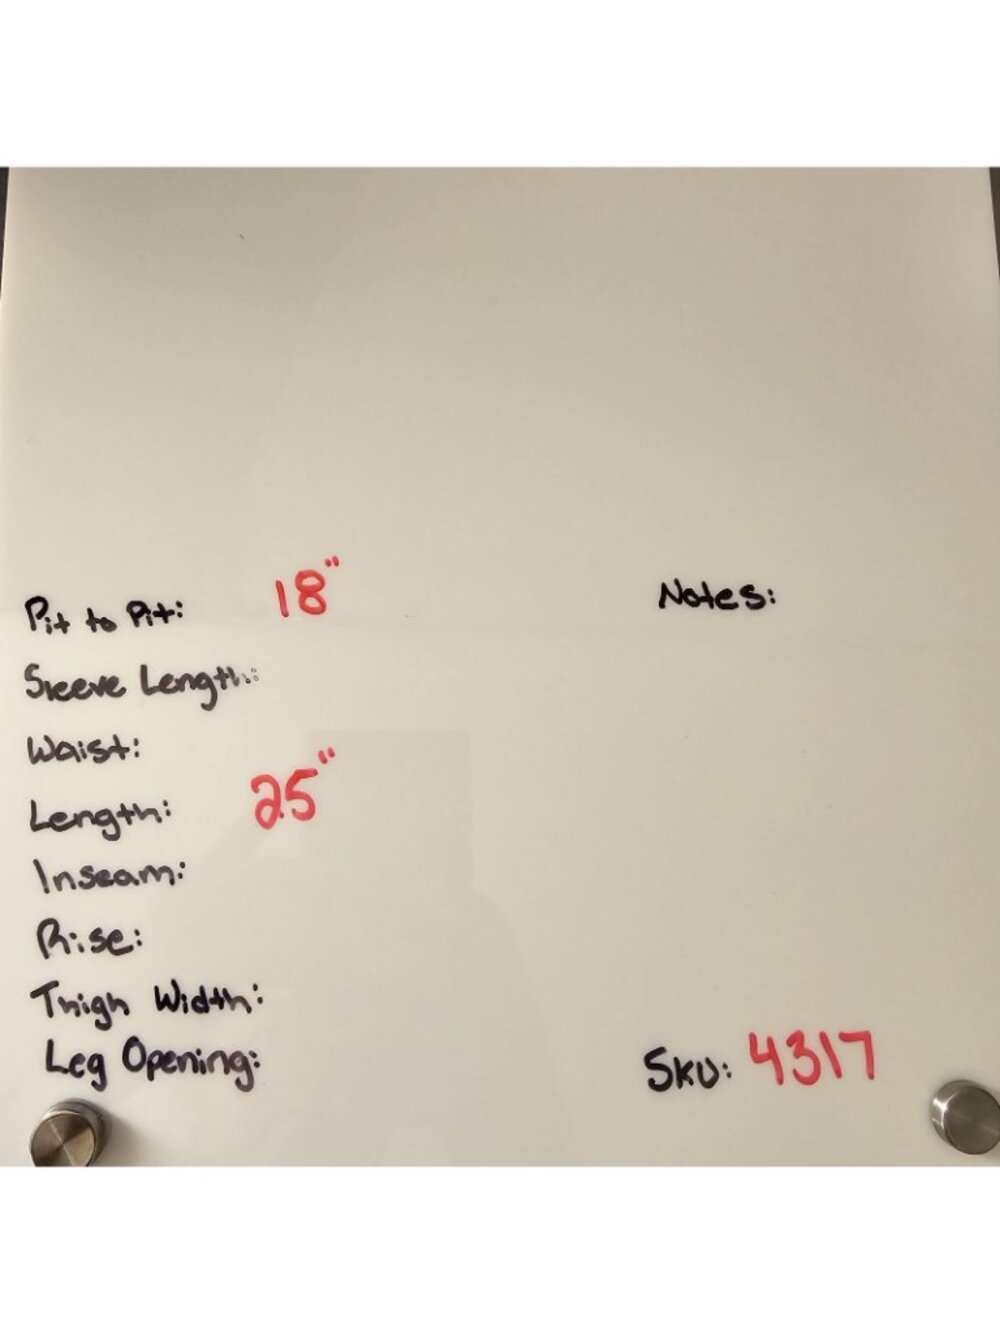 Pit to Pit: 18"
Notes:
Sleeve Length:
Waist:
Length: 25"
Inseam:
Rise:
Thigh Width:
Leg Opening:
SKU: 4317